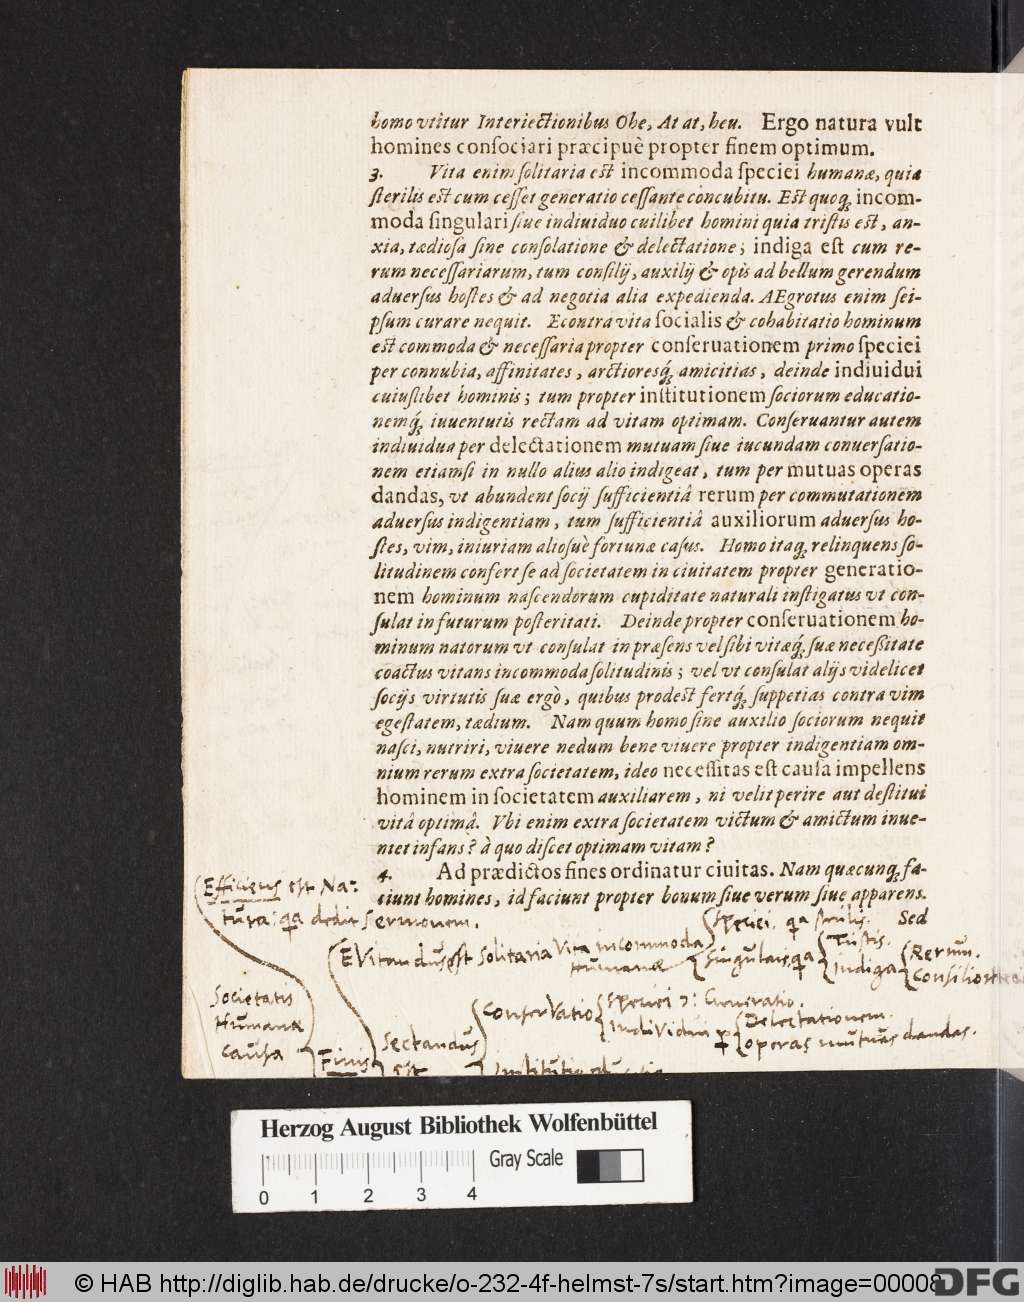 homo vtitur Interiectionibus Ohe, At at, heu. Ergo natura vult
homines consociari præcipuè propter finem optimum.
3. Vita enim solitaria est incommoda speciei humanæ, quia
sterilis est cum cesset generatio cessante concubitu. Est quoq; incom-
moda singulari siue indiuiduo cuilibet homini quia tristis est, an-
xia, tædiosa sine consolatione & delectatione; indiga est cum re-
rum necessariarum, tum consilij, auxilij & opis ad bellum gerendum
aduersus hostes & ad negotia alia expedienda. AEgrotus enim sei-
psum curare nequit. Econtra vita socialis & cohabitatio hominum
est commoda & necessaria propter conseruationem primo speciei
per connubia, affinitates, arctioresq́; amicitias, deinde indiuidui
cuiuslibet hominis; tum propter institutionem sociorum educatio-
nemq́; iuuentutis rectam ad vitam optimam. Conseruantur autem
indiuidua per delectationem mutuam siue iucundam conuersatio-
nem etiamsi in nullo alius alio indigeat, tum per mutuas operas
dandas, vt abundent socij sufficientiâ rerum per commutationem
aduersus indigentiam, tum sufficientiâ auxiliorum aduersus ho-
stes, vim, iniuriam aliosuè fortunæ casus. Homo itaq; relinquens so-
litudinem confert se ad societatem in ciuitatem propter generatio-
nem hominum nascendorum cupiditate naturali instigatus vt con-
sulat in futurum posteritati. Deinde propter conseruationem ho-
minum natorum vt consulat in præsens vel sibi vitæq́; suæ necessitate
coactus vitans incommoda solitudinis; vel vt consulat alijs videlicet
socijs virtutis suæ ergò, quibus prodest fertq́; suppetias contra vim
egestatem, tædium. Nam quum homo sine auxilio sociorum nequit
nasci, nutriri, viuere nedum bene viuere propter indigentiam om-
nium rerum extra societatem, ideo necessitas est causa impellens
hominem in societatem auxiliarem, ni velit perire aut destitui
vitâ optimâ. Vbi enim extra societatem victum & amictum inue-
niet infans? à quo discet optimam vitam?
4. Ad prædictos fines ordinatur ciuitas. Nam quæcunq; fa-
ciunt homines, id faciunt propter bonum siue verum siue apparens.
Sed
Efficiens est Na-
tura: qa dedit sermonem.
Societatis
Humanæ
causa
Finis
EVitandus est Solitaria Vita incommoda
Humanæ
Speciei, qa sterilis.
Singularis, qa
Tristis.
indiga
Rerum.
Consiliorum
Sectandus
est
Conservatio
Speciei: Generatio.
Individui
Delectationem.
operas mutuas dandas.
Herzog August Bibliothek Wolfenbüttel
Gray Scale
0 1 2 3 4
© HAB http://diglib.hab.de/drucke/o-232-4f-helmst-7s/start.htm?image=00008
DFG